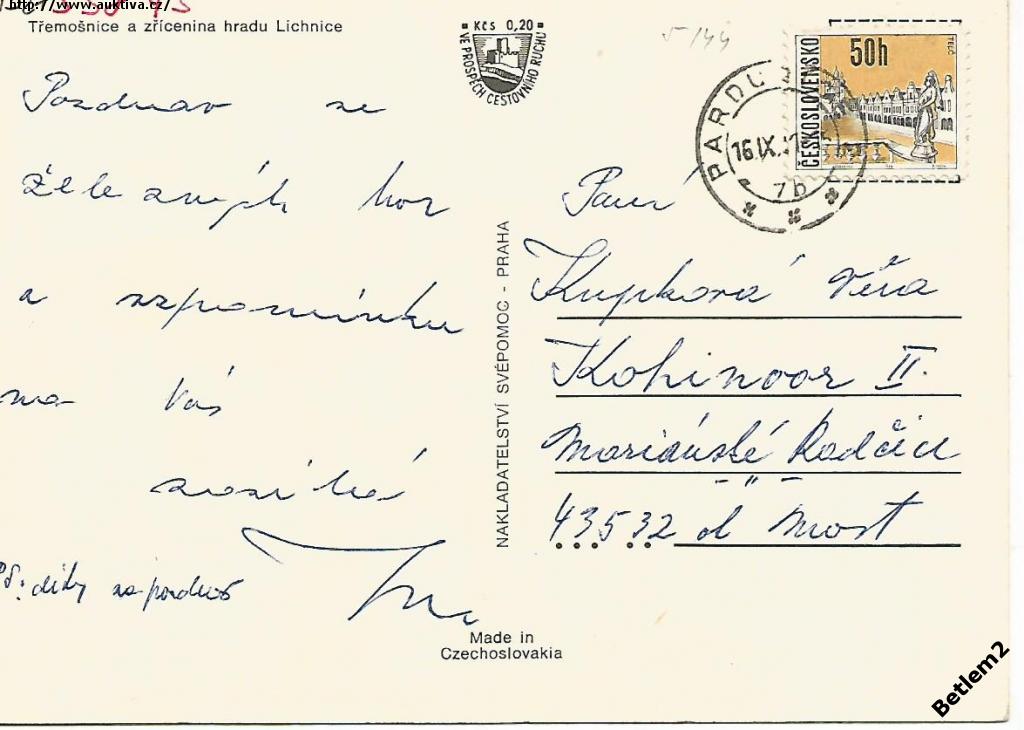 http://www.auktiva.cz/
Třemošnice a zřícenina hradu Lichnice
Kčs 0,20
VE PROSPĚCH CESTOVNÍHO RUCHU
5/44
ČESKOSLOVENSKO
50h
TELČ
PARDU
16.IX.
7b
Pozdrav ze
Železných hor
a vzpomínku
na Vás
zasílá
PS: díky za pozdrav
NAKLADATELSTVÍ SVÉPOMOC - PRAHA
Paní
Kupková Věra
Kohinoor II.
Mariánské Radčice
- " -
43532 o. Most
Made in
Czechoslovakia
Betlem2